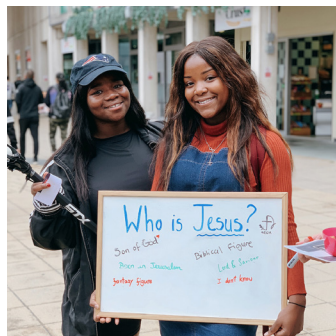 Who is Jesus?
Son of God
Biblical Figure
Born in Jerusalem
Lord & Saviour
fantasy figure
I don't know